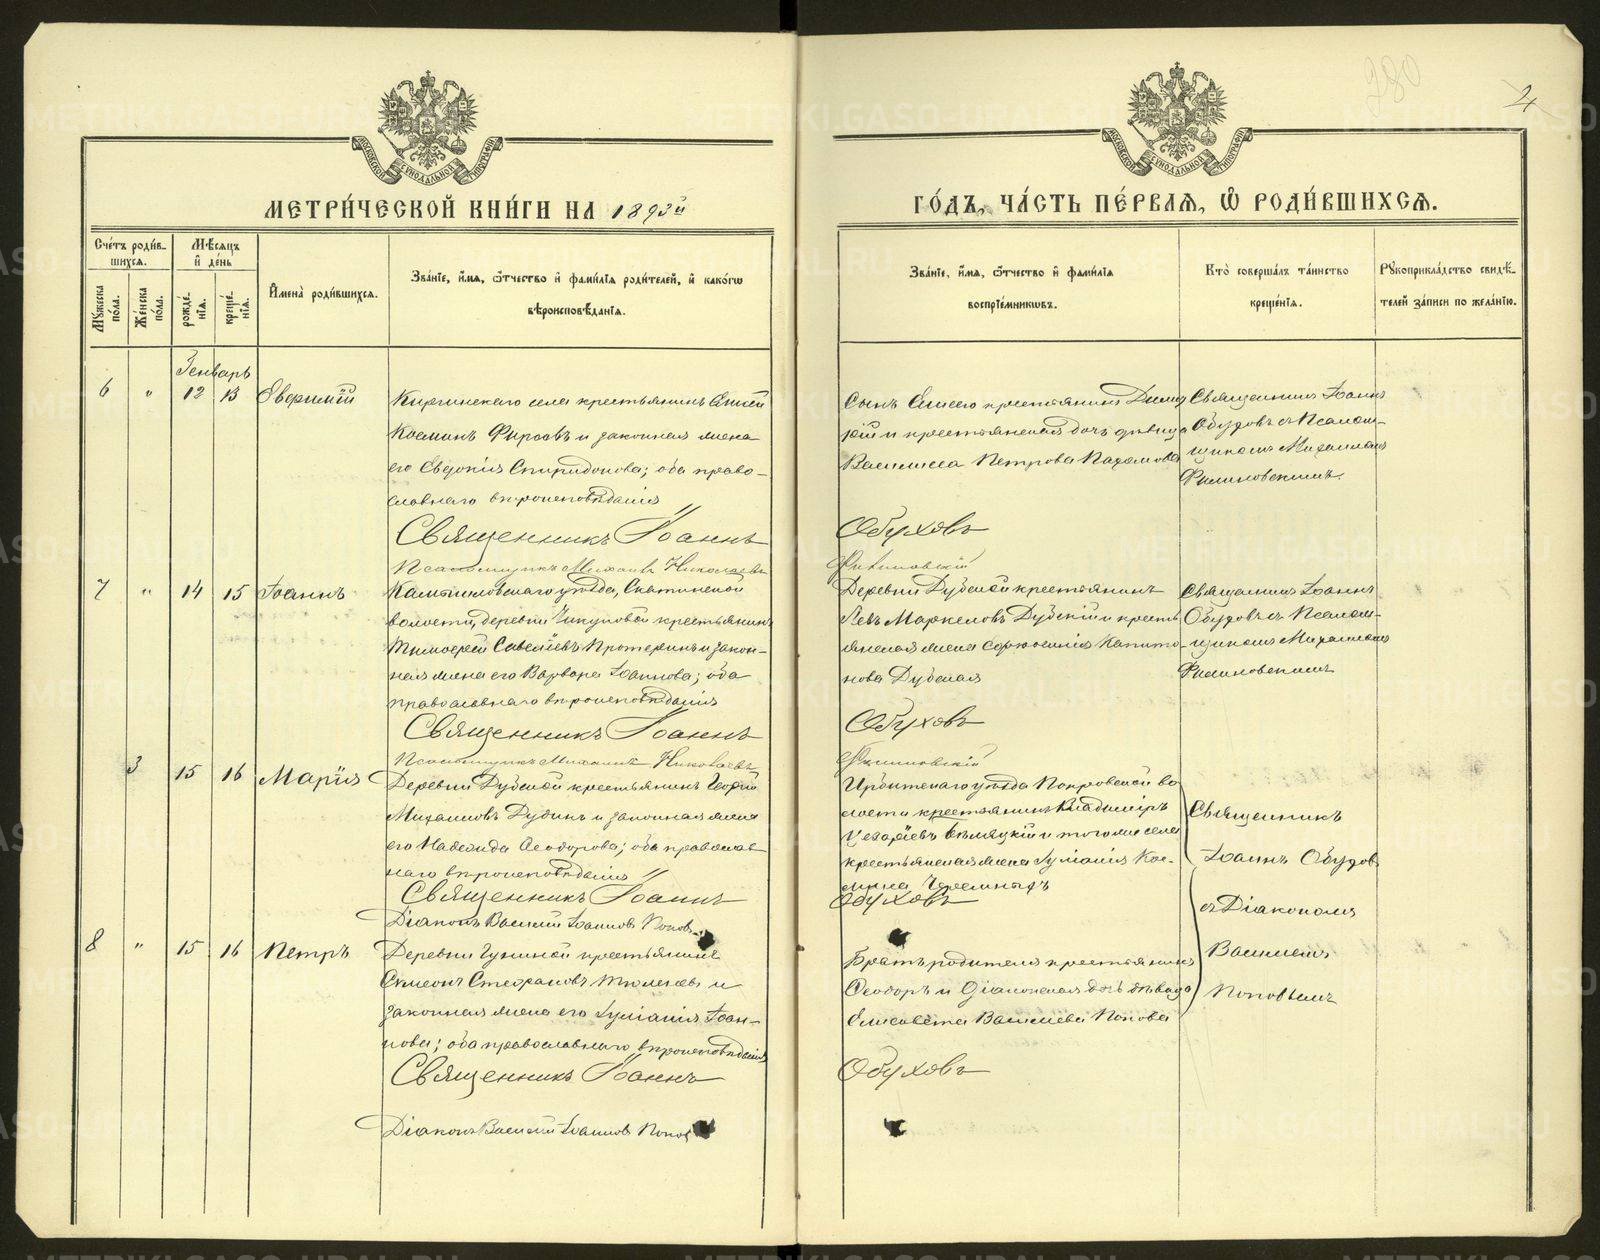 МЕТРИ́ЧЕСКОЙ КНИ́ГИ НА 1893й
Сче́тъ роди́в-
шихся.
Мѣсяцъ
и҆ де́нь
Му́жеска по́ла.
Же́нска по́ла.
рожде́-
нїѧ.
креще́-
нїѧ.
И҆мена̀ роди́вшихся.
Зва́нїе, и҆́мѧ, ѻ҆́тчество и҆ фами́лїѧ роди́телей, и҆ како́гѡ
вѣроисповѣ́данїѧ.
Генварь
6 " 12 13 Евфимій
Киргинскаго села крестьянинъ Елисей
Косминъ Фирсовъ и законная жена
его Евдокія Спиридонова; оба право-
славнаго вѣроисповѣданія
Священникъ Іоаннъ
Псаломщикъ Михаилъ Николаевъ
7 " 14 15 Іоаннъ
Камышловскаго уѣзда, Скатинской
волости, деревни Чикуновой крестьянинъ
Тимофей Савеліевъ Протеринъ и закон-
ная жена его Варвара Іоаннова; оба
православнаго вѣроисповѣданія
Священникъ Іоаннъ
Псаломщикъ Михаилъ Николаевъ
3 15 16 Марія
Деревни Дубской крестьянинъ Георгій
Михаиловъ Дубинъ и законная жена
его Надежда Ѳеодорова; оба православ-
наго вѣроисповѣданія
Священникъ Іоаннъ
Діаконъ Василій Іоанновъ Поповъ
8 " 15 16 Петръ
Деревни Гуниной крестьянинъ
Симеонъ Стефановъ и
законная жена его Іуліанія Іоан-
нова; оба православнаго вѣроисповѣданія
Священникъ Іоаннъ
Діаконъ Василій Іоанновъ Поповъ
280
2
ГО́ДЪ, ЧА́СТЬ ПЕ́РВАЯ, Ѡ҆ РОДИ́ВШИХСЯ.
Зва́нїе, и҆́мѧ, ѻ҆́тчество и҆ фами́лїѧ
воспрїе́мникѡвъ.
Кто̀ соверша́лъ та́инство
креще́нїѧ.
Рꙋкоприкла́дство свидѣ́-
телей за́писи по жела́нїю.
Сынъ Елисея крестьянинъ Дими-
трій и крестьянская дочь дѣвица
Василисса Петрова Пахомова
Священникъ Іоаннъ
Обуховъ съ Псалом-
щикомъ Михаиломъ
Филиновскимъ.
Обуховъ
Филиновскій
Деревни Дубской крестьянинъ
Левъ Маркеловъ Дубскій и кресть-
янская жена Капито-
нова Дубская
Священникъ Іоаннъ
Обуховъ съ Псалом-
щикомъ Михаиломъ
Филиновскимъ
Обуховъ
Филиновскій
Ирбитскаго уѣзда Покровской во-
лости крестьянинъ Владиміръ
и того же села
крестьянская жена Іуліанія Кос-
мина
Обуховъ
Священникъ
Іоаннъ Обуховъ
съ Діакономъ
Василіемъ
Поповымъ
Братъ родителя крестьянинъ
Ѳеодоръ и Діаконская дочь дѣвица
Елисавета Василіева Попова
Обуховъ